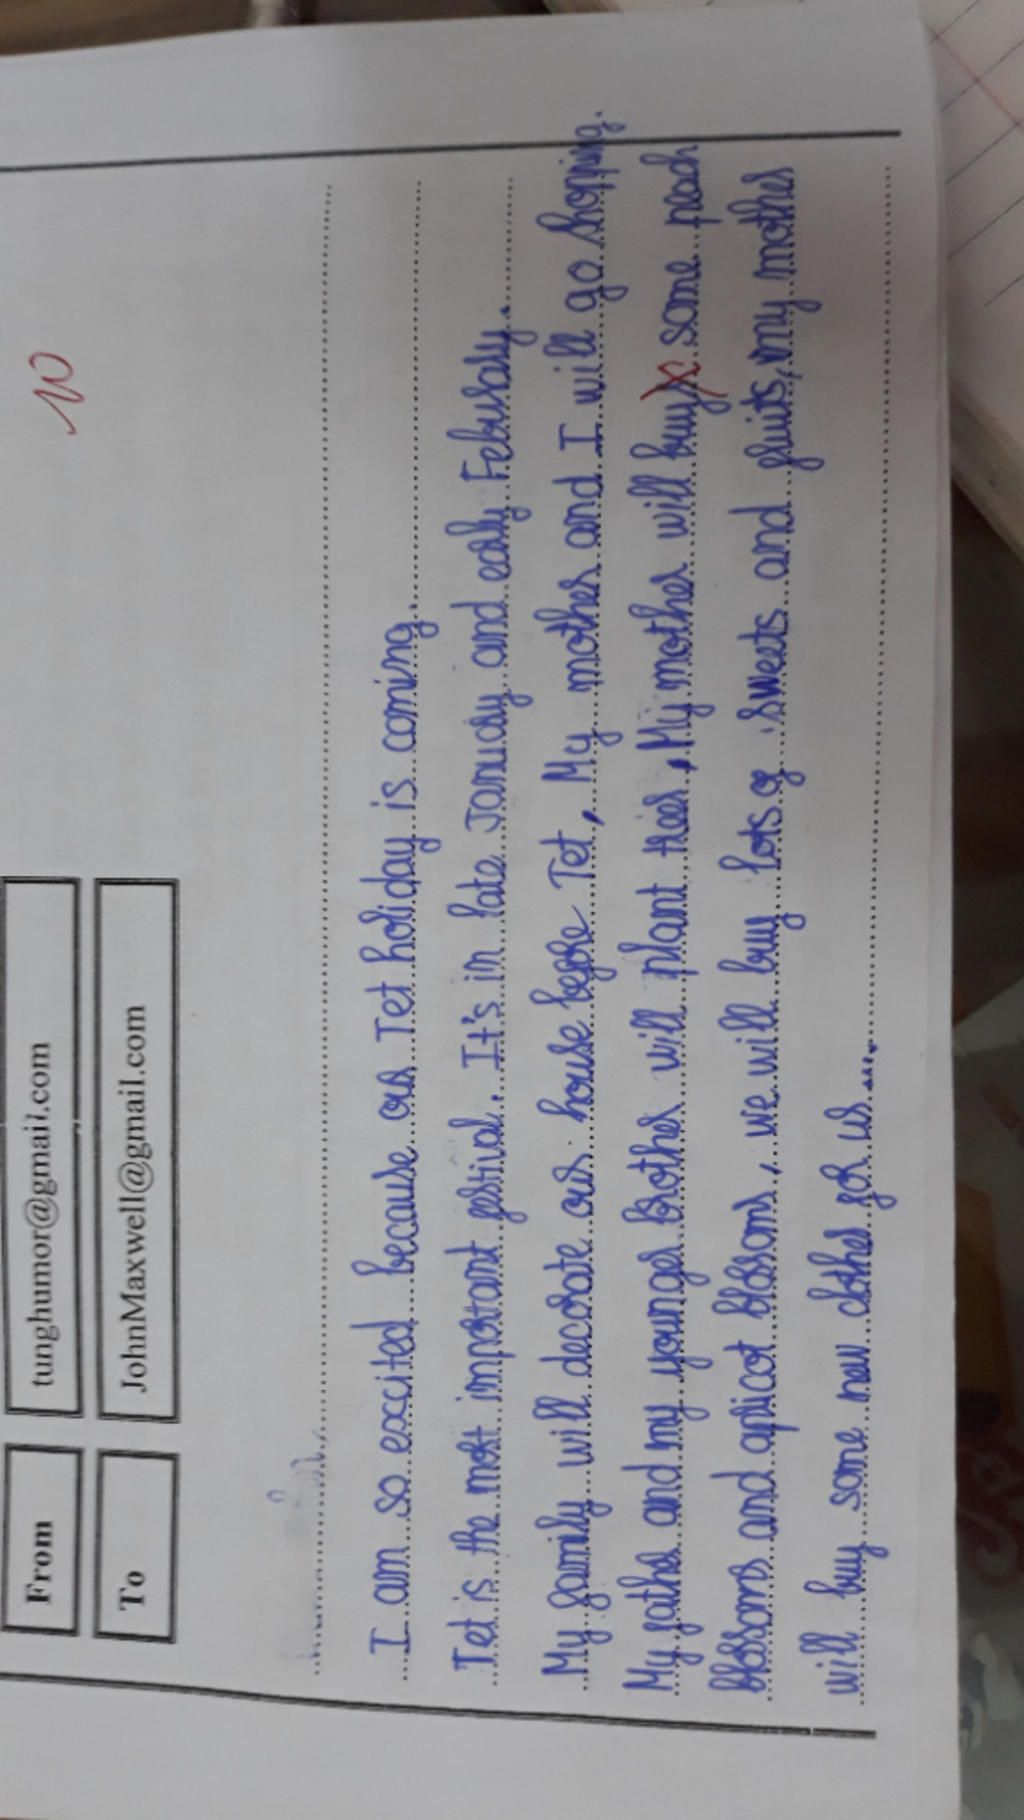 10
From tunghumor@gmail.com
To JohnMaxwell@gmail.com
I am so excited because our Tet holiday is coming.
Tet is the most important festival. It's in late January and early Febuary.
My family will decorate our house before Tet, My mother and I will go shopping.
My father and my younger brother will plant trees, My mother will buy some peach
blossoms and apricot blossoms, we will buy lots of sweets and fruits, my mother
will buy some new clothes for us ....